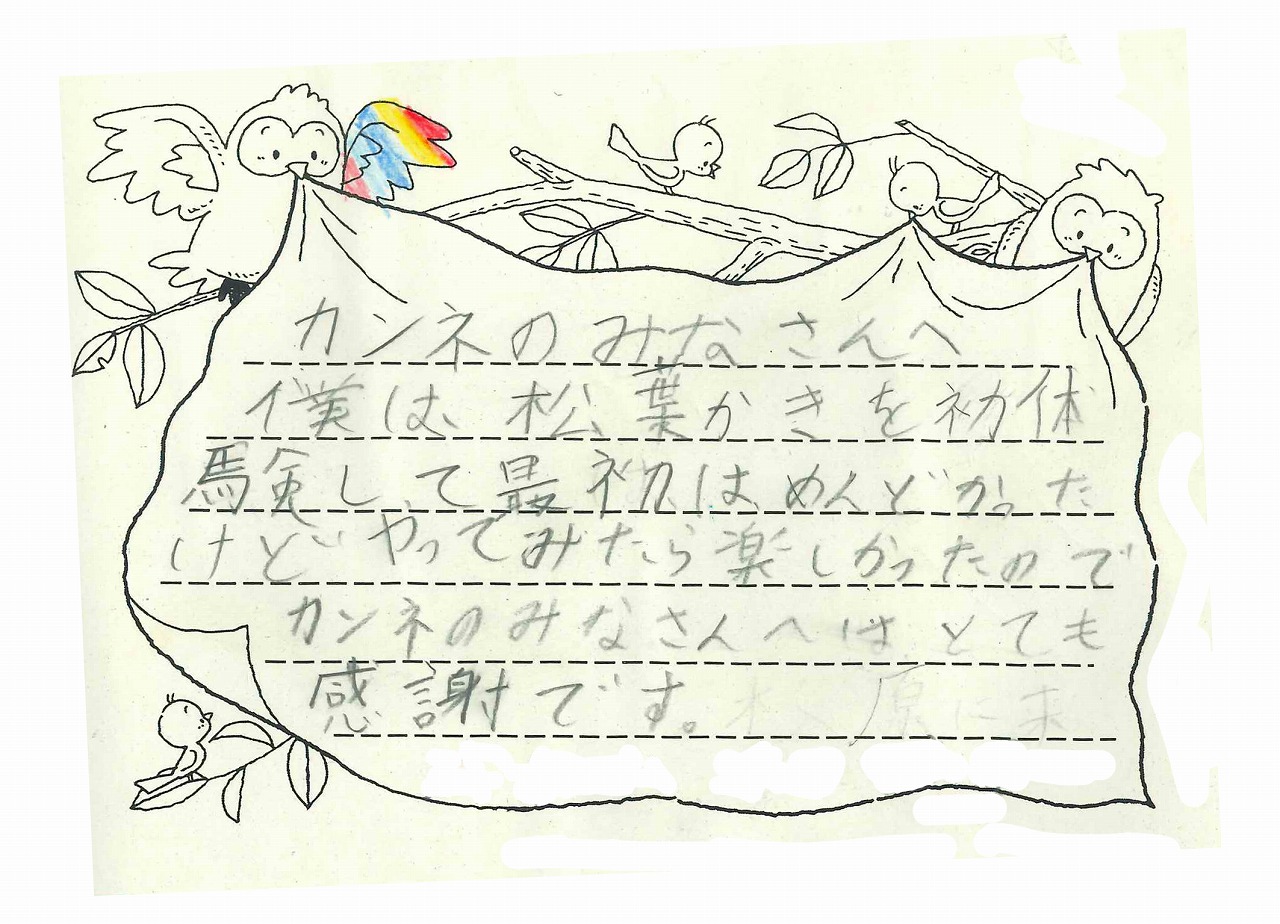 カンネのみなさんへ
僕は、松葉かきを初体
験して最初はめんどかった
けどやってみたら楽しかったので
カンネのみなさんへはとても
感謝です。